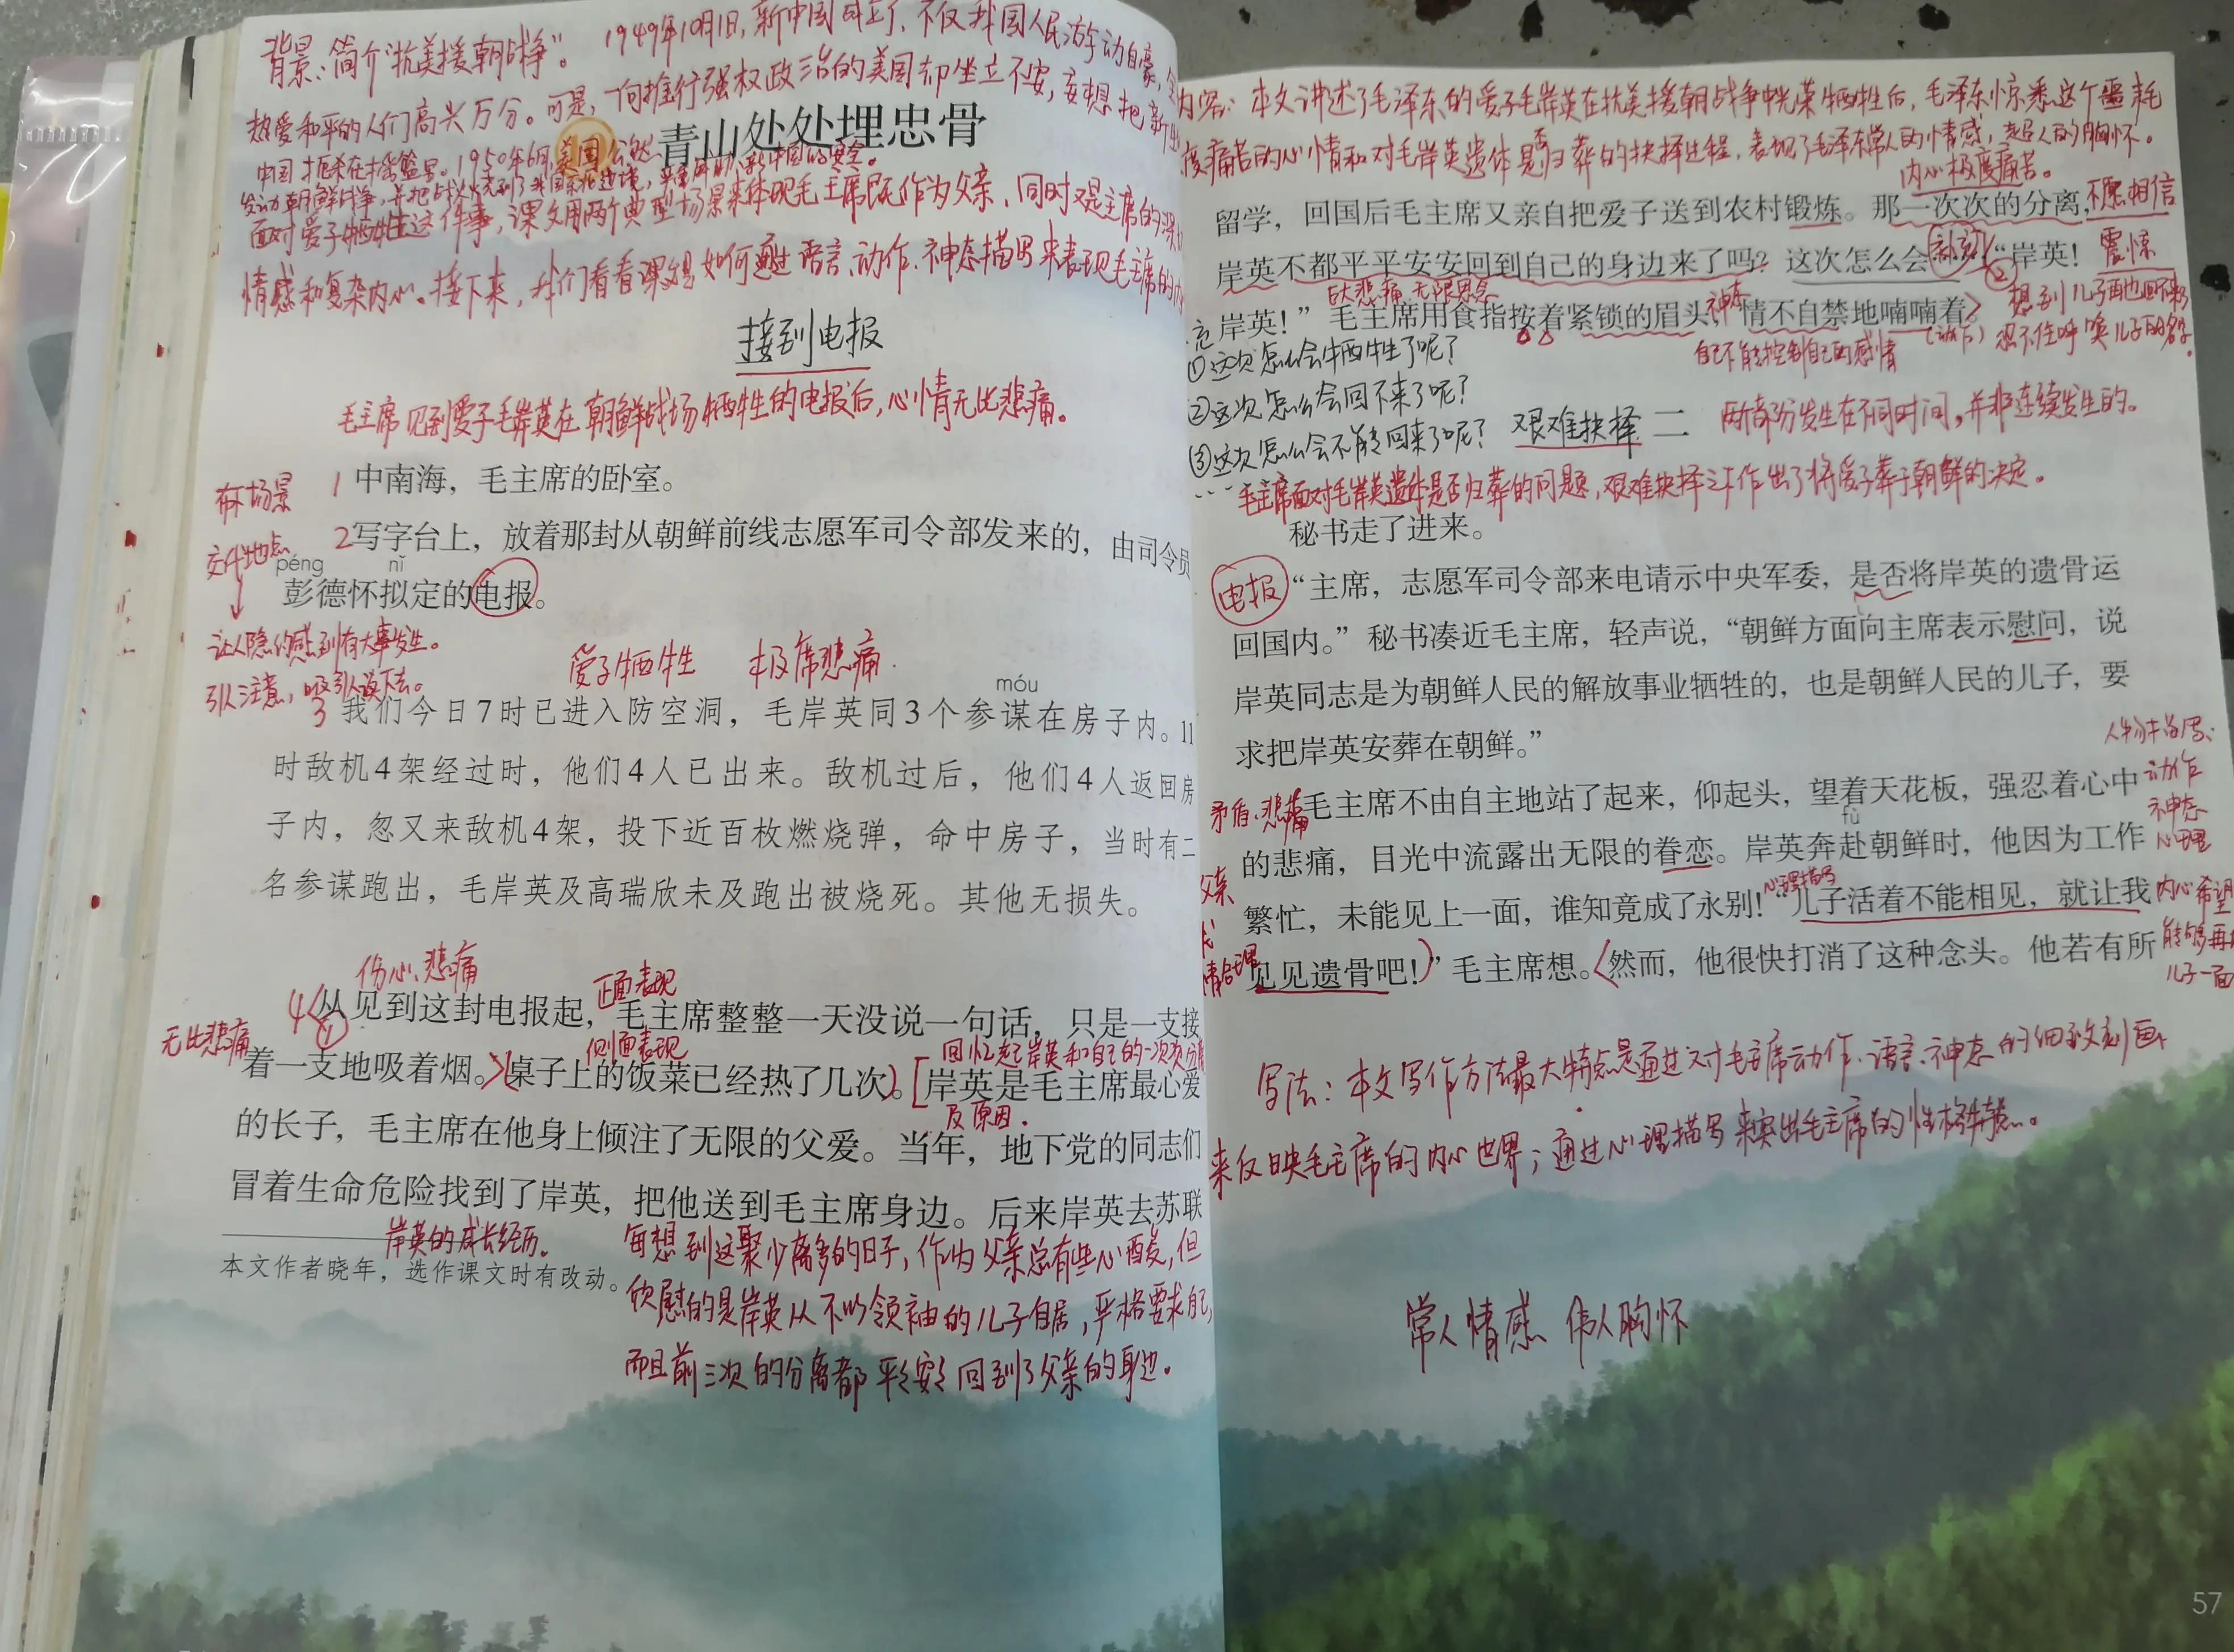 背景：简介“抗美援朝战争”。 1949年10月1日，新中国成立了，不仅我国人民激动自豪，
热爱和平的人们高兴万分。可是，一向推行强权政治的美国却坐立不安，妄想把新生
中国扼杀在摇篮里。1950年6月，美国公然
青山处处埋忠骨
发动朝鲜战争，并把战火烧到了我国东北边境，新中国的安全。
面对爱子牺牲这件事，课文用两个典型场景来体现毛主席既作为父亲、同时又是主席的深切
情感和复杂内心。接下来，我们看看课文是如何通过语言、动作、神态描写来表现毛主席的内
接到电报
毛主席见到爱子毛岸英在朝鲜战场牺牲的电报后，心情无比悲痛。
1 中南海，毛主席的卧室。
2写字台上，放着那封从朝鲜前线志愿军司令部发来的，由司令员
交代地点
péng nǐ
彭德怀拟定的电报。
让人隐约感到有大事发生。
引人注意，吸引人读下去。
爱子牺牲 极度悲痛
móu
3 我们今日7时已进入防空洞，毛岸英同3个参谋在房子内。11
时敌机4架经过时，他们4人已出来。敌机过后，他们4人返回房
子内，忽又来敌机4架，投下近百枚燃烧弹，命中房子，当时有二
名参谋跑出，毛岸英及高瑞欣未及跑出被烧死。其他无损失。
伤心、悲痛 正面表现
4 从见到这封电报起，毛主席整整一天没说一句话，只是一支接
①
无比悲痛
侧面表现 回忆起岸英和自己的一次次分离
着一支地吸着烟。桌子上的饭菜已经热了几次。岸英是毛主席最心爱
及原因。
的长子，毛主席在他身上倾注了无限的父爱。当年，地下党的同志们
冒着生命危险找到了岸英，把他送到毛主席身边。后来岸英去苏联
岸英的成长经历。
本文作者晓年，选作课文时有改动。
每想到这聚少离多的日子，作为父亲总有些心酸，但
欣慰的是岸英从不以领袖的儿子自居，严格要求自己，
而且前三次的分离都平平安安回到了父亲的身边。
内容：本文讲述了毛泽东的爱子毛岸英在抗美援朝战争中光荣牺牲后，毛泽东惊悉这个噩耗
度痛苦的心情和对毛岸英遗体是否归葬的抉择过程，表现了毛泽东常人的情感，超人的胸怀。
内心极度痛苦。
留学，回国后毛主席又亲自把爱子送到农村锻炼。那一次次的分离，
不愿相信
岸英不都平平安安回到自己的身边来了吗？这次怎么会……“岸英！
②
震惊
巨大悲痛 无限思念 神态
岸英！”毛主席用食指按着紧锁的眉头，情不自禁地喃喃着。
想到儿子再也回不来了
忍不住呼唤儿子的名字。
（动作）
自己不能控制自己的感情
①这次怎么会牺牲了呢？
②这次怎么会回不来了呢？
③这次怎么会不能回来了呢？
……
艰难抉择 二 两部分发生在不同时间，并非连续发生的。
毛主席面对毛岸英遗体是否归葬的问题，艰难抉择之下作出了将爱子葬于朝鲜的决定。
秘书走了进来。
电报
“主席，志愿军司令部来电请示中央军委，是否将岸英的遗骨运
回国内。”秘书凑近毛主席，轻声说，“朝鲜方面向主席表示慰问，说
岸英同志是为朝鲜人民的解放事业牺牲的，也是朝鲜人民的儿子，要
求把岸英安葬在朝鲜。”
人物描写：
动作
神态
心理
矛盾、悲痛
毛主席不由自主地站了起来，仰起头，望着天花板，强忍着心中
fù
的悲痛，目光中流露出无限的眷恋。岸英奔赴朝鲜时，他因为工作
心理描写
繁忙，未能见上一面，谁知竟成了永别！“儿子活着不能相见，就让我
内心希望
能够再见
儿子一面
父亲
情合理
见见遗骨吧！”毛主席想。然而，他很快打消了这种念头。他若有所
写法：本文写作方法最大特点是通过对毛主席动作、语言、神态的细致刻画，
来反映毛主席的内心世界；通过心理描写来突出毛主席的性格特点。
常人情感 伟人胸怀
57